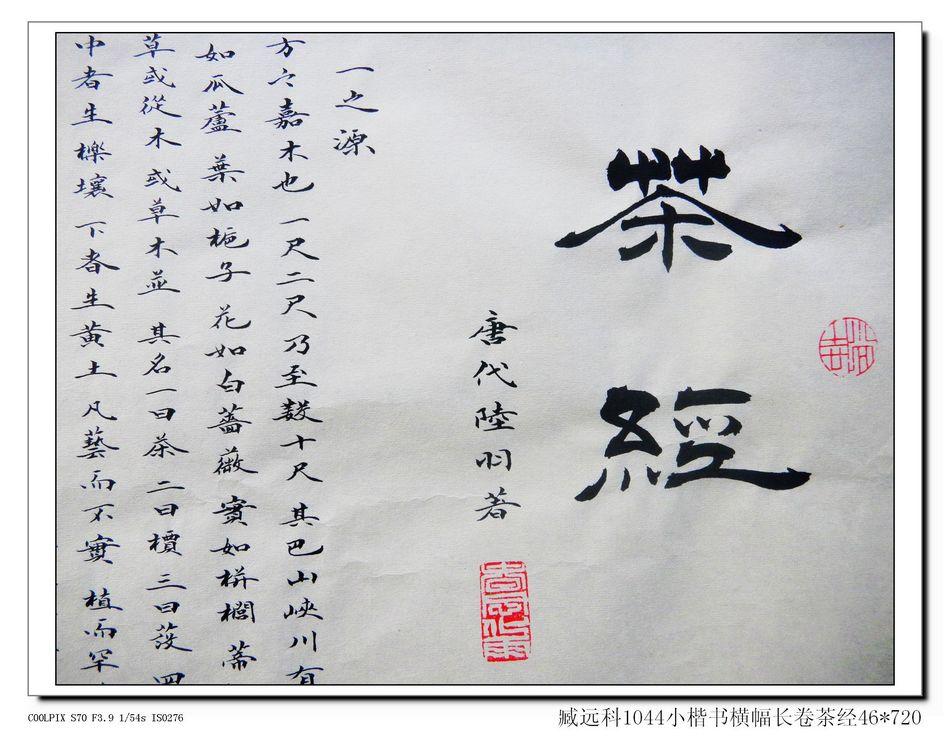 茶經
唐代陸羽著
一之源
方之嘉木也一尺二尺乃至數十尺其巴山峽川有
如瓜蘆葉如梔子花如白薔薇實如栟櫚蒂
草或從木或草木並其名一曰茶二曰檟三曰蔎四
中者生櫟壤下者生黃土凡藝而不實植而罕
COOLPIX S70 F3.9 1/54s ISO276
臧远科1044小楷书横幅长卷茶经46*720